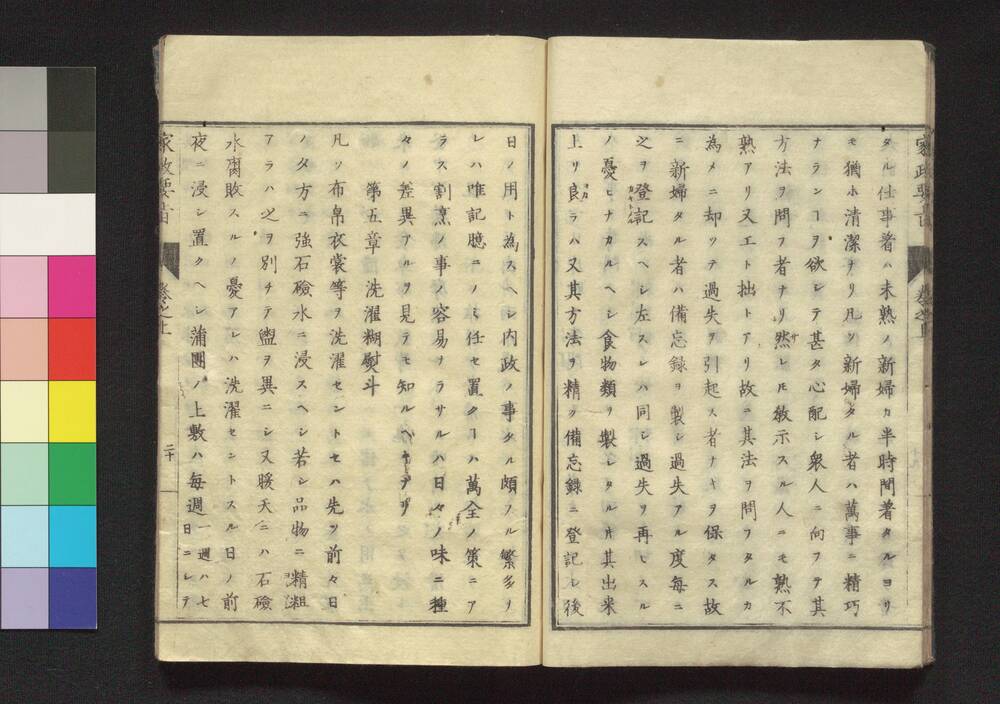 タル仕事着ハ未熟ノ新婦カ半時間著タルヨリ
モ猶ホ清潔ナリ凡ソ新婦タル者ハ萬事ニ精巧
ナランヿヲ欲シテ甚タ心配シ衆人ニ向フテ其
方法ヲ問フ者ナリ然レ𪜈敎示スル人ニモ熟不
熟アリ又エト拙トアリ故ニ其法ヲ問フタルカ
為メニ却ツテ過失ヲ引起ス者ナキヲ保タス故
ニ新婦タル者ハ備忘録ヲ製シ過失アル度毎ニ
之ヲ登記スヘシ左スレハ同シ過失リ再ヒスル
ノ憂ヒナカルヘシ食物類ヲ製シタル片其出来
上リ良ラハ又其方法ヲ精ク備忘録ニ登記シ後
日ノ用ト為スヘシ内政ノ事タル頗フル繁多リ
レハ唯記臆ニノミ任セ置クヿハ萬全ノ策ニア
ラス割烹ノ事ノ容易ヲラサルハ日々ノ味ニ種
々ノ差異アルヲ見テモ知ルヘキナリ
第五章 洗濯糊熨斗
凡ソ布帛衣裳等ヲ洗濯セントセハ先ツ前々日
ノタ方ニ強石鹸水ニ浸スヘシ若シ品物ニ精粗
アラハ之ヲ別チテ盥ヲ異ニシ又暖天ニハ石鹸
水腐敗スルノ憂アレハ洗濯セントスル日ノ前
夜ニ浸シ置クヘシ蒲團ノ上敷ハ每週一週ハ七日ニシテ
家政要旨 卷之上 二十